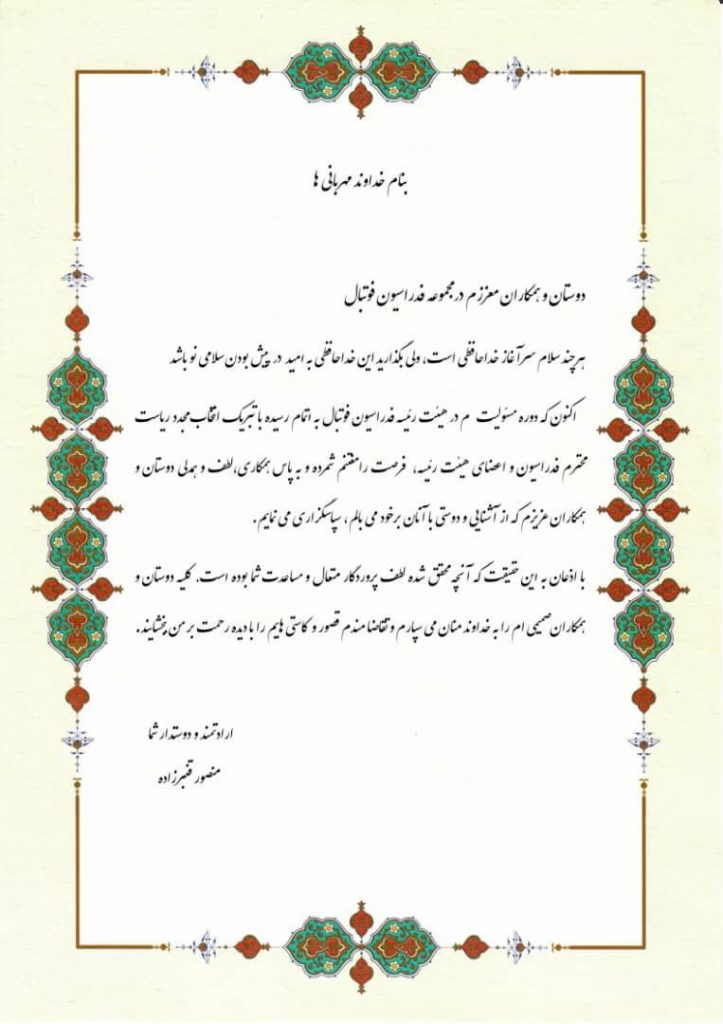 بنام خداوند مهربانی ها
دوستان و همکاران معززم در مجموعه فدراسیون فوتبال
هرچند سلام سرآغاز خداحافظی است، ولی بگذارید این خداحافظی به امید در پیش بودن سلامی نو باشد
اکنون که دوره مسئولیت م در هیئت رئیسه فدراسیون فوتبال به اتمام رسیده با تبریک انتخاب مجدد ریاست
محترم فدراسیون و اعضای هیئت رئیسه، فرصت را مغتنم شمرده و به پاس همکاری، لطف و همدلی دوستان و
همکاران عزیزم که از آشنایی و دوستی با آنان برخود می بالم، سپاسگزاری می نمایم.
با اذعان به این حقیقت که آنچه محقق شده لطف پروردگار متعال و مساعدت شما بوده است. کلیه دوستان و
همکاران صمیمی ام را به خداوند منان می سپارم و تقاضامندم قصور و کاستی هایم را با دیده رحمت بر من بخشایند.
ارادتمند و دوستدار شما
منصور قنبرزاده